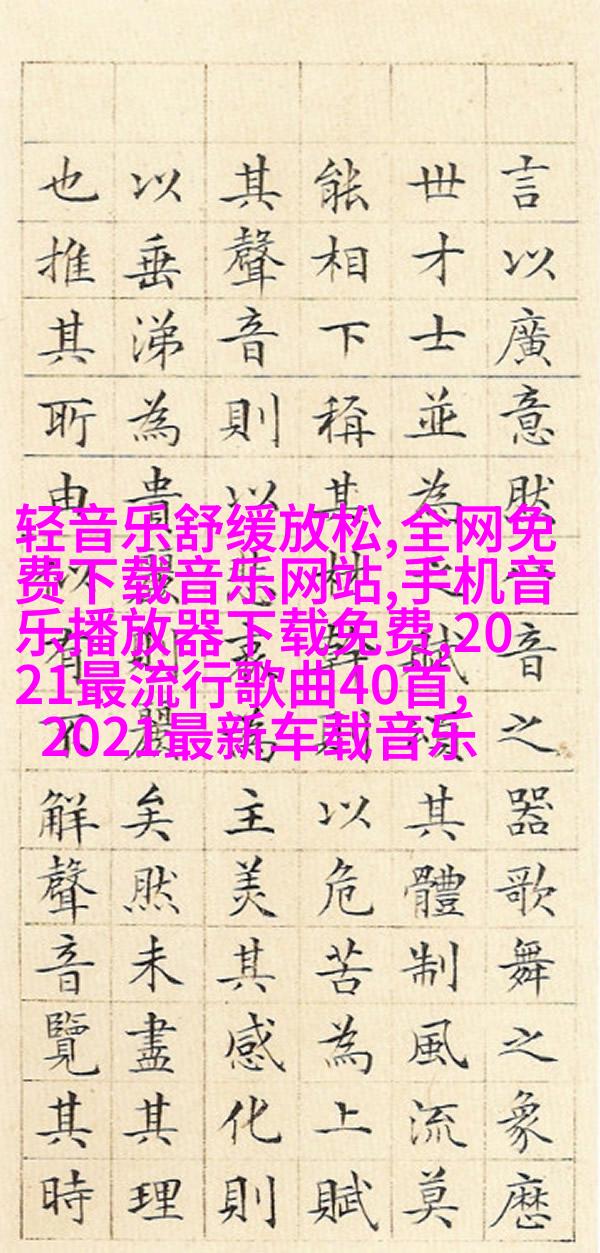 言以廣意然音之器歌舞之象歷
世才士並為之賦頌其體制風流莫
能相下稱其材幹則以危苦為上賦
其聲音則以悲哀為主美其感化則
以垂涕為貴麗則麗矣然未盡其理
也推其所由似有不解聲音覽其時
轻音乐舒缓放松,全网免
费下载音乐网站,手机音
乐播放器下载免费,20
21最流行歌曲40首,
2021最新车载音乐